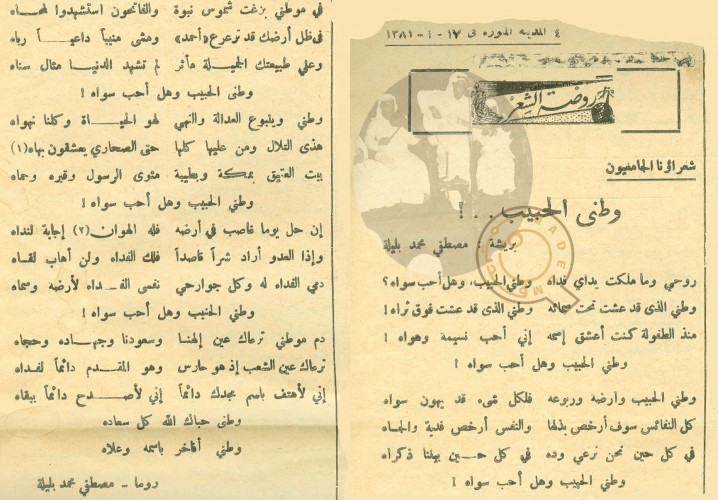 ٤ المدينة المنورة فى ١٧ - ٤ - ١٣٨١
روضة الشعر
شعراؤنا الجامعيون
وطنى الحبيب . . . !
بريشة : مصطفي محمد بليلة
روحي وما ملكت يداي فداه وطني الحبيب، وهل أحب سواه؟
وطني الذى قد عشت تحت سمائه وطني الذى قد عشت فوق ثراه !
منذ الطفولة كنت أعشق إسمه إني أحب نسيمه وهواه !
وطني الحبيب وهل أحب سواه !
وطني الحبيب وارضه وربوعه فلكل شىء قد يهون سواه
كل النفائس سوف أرخص بذلها والنفس أرخص فدية والجاه
في كل حين نحن نرعي وده في كل حــين بيننا ذكراه
وطني الحبيب وهل أحب سواه !
في موطني بزغت شموس نبوة والفاتحون استشهدوا لحماه
فى ظل أرضك قد ترعرع «أحمد» ومشى منيباً داعيـاً رباه
وعلي طبيعتك الجميلة مآثر لم تشهد الدنيا مثال سناه
وطنى الحبيب وهل أحب سواه !
وطني وينبوع العدالة والنهي لهو الحيــاة وكلنا نهواه
هذى التلال ومن عليها كلها حتى الصحاري يعشقون بهاه (١)
بيت العتيق بمـكة وبطيبة مثوى الرسول وقبره وحماه
وطني الحبيب وهل أحب سواه !
إن حل يوما غاصب في أرضه فله الهوان (٢) إجابة لنداه
وإذا العدو أراد شراً قاصداً فلك الفداء ولن أهاب لقاه
دمي الفداء له وكل جوارحي نفسى الفــداء لأرضه وسماه
وطني الحبيب وهل أحب سواه !
دم موطني ترعاك عين إلهنا وسعودنا وجهـاده وحجاه
ترعاك عين الشعب إذ هو حارس وهو المقـدم دائماً لفـداه
إني لأهتف باسم مجدك دائماً إني لأصــدح دائماً ببقاه
وطنى حباك الله كل سعاده
وطني أفاخر باسمه وعلاه
روما - مصطفي محمد بليلة